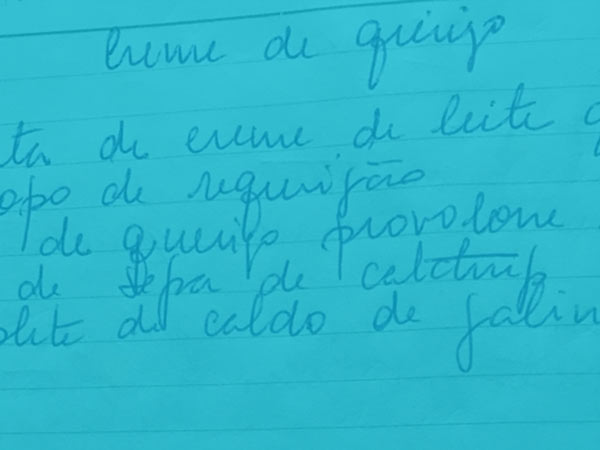 Creme de queijo
ta de creme de leite
opo de requeijão
de queijo provolone
de sopa de catchup
blete de caldo de galin